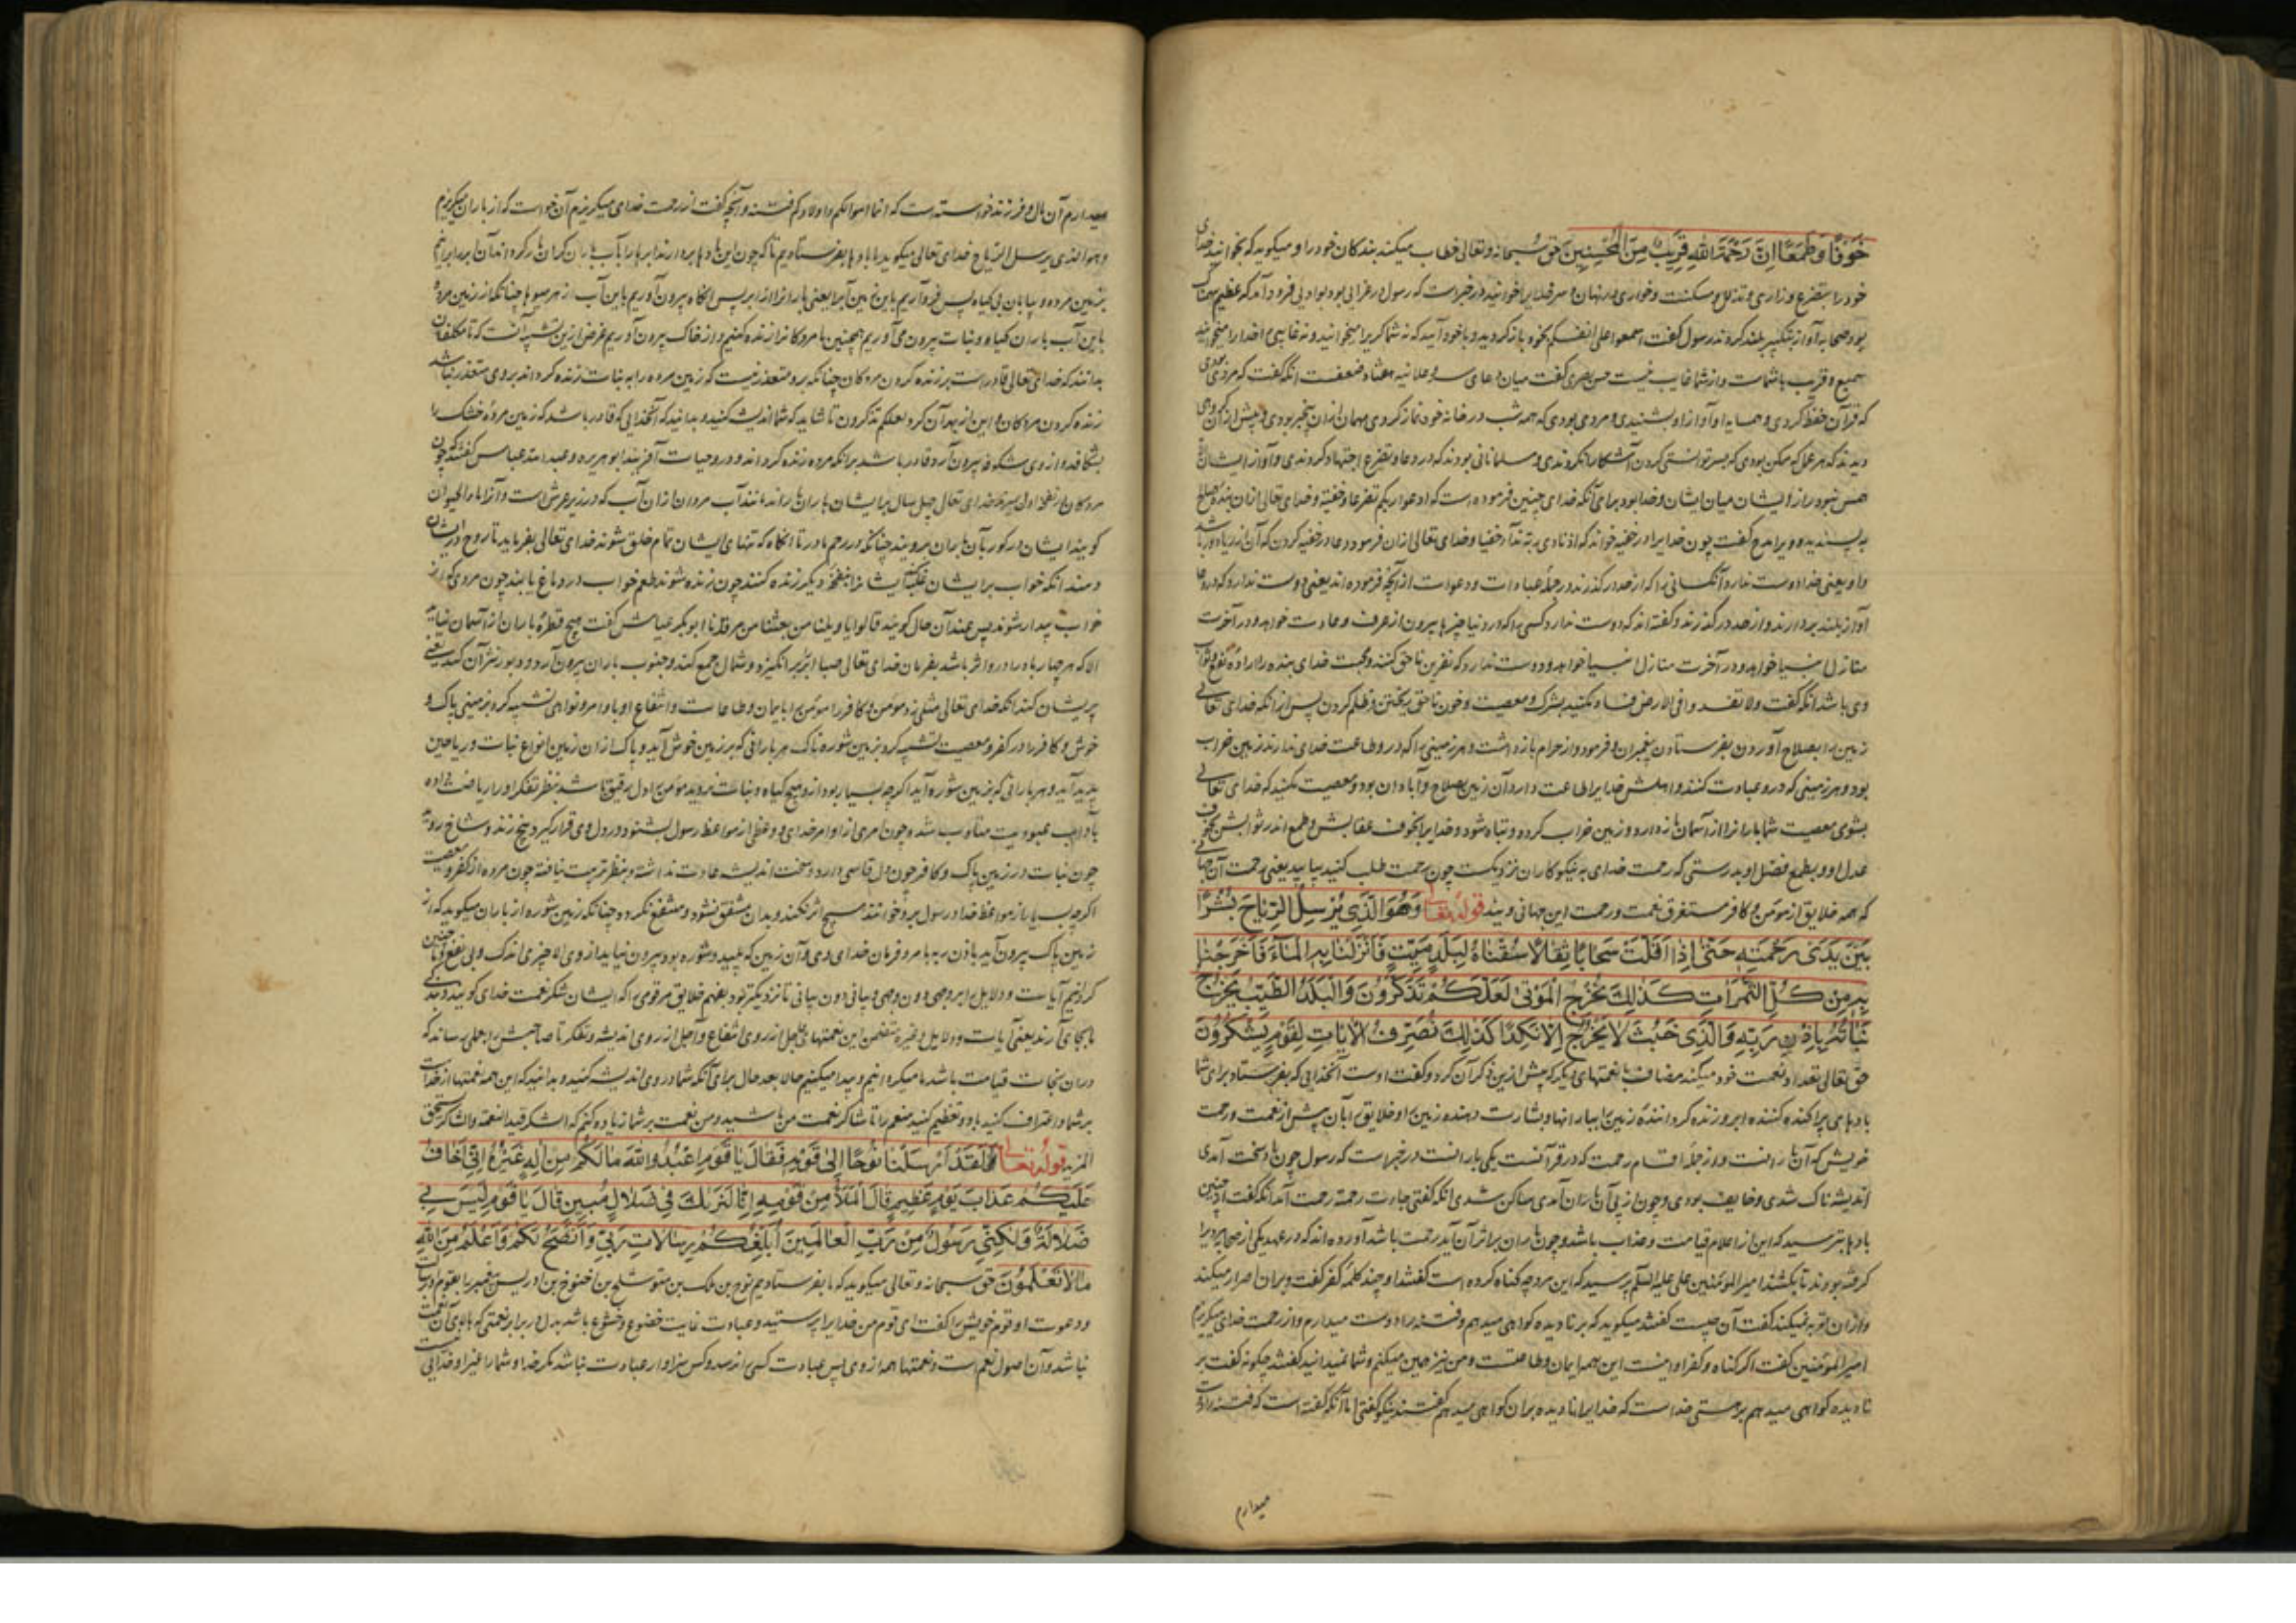 خَوْفًا وَطَمَعًا اِنَّ رَحْمَةَ اللهِ قَرِيبٌ مِنَ الْمُحْسِنِينَ حق سبحانه وتعالى خطاب میکند بندکان خود را و میکوید که بخوانید خدای
خود را بتضرع وزاری و تذلل و مسکنت وخواری در نهان و سر خدایرا خوانید در خبر است که رسول در غزایی بود بوادیی فرود آمد که عظیم
بود صحابه آواز بتکبیر بلند کردند رسول کفت علی انفسکم بخود باز کردید و با خود آیید که نه شما کریرا میخوانید و نه غایبی خدا را میخوانید
سمیع و قریب باشماست و از شما غایب نیست حسن بصری کفت میان دعای سر و علانیه هفتاد ضعفست انکه کفت که مردی بودی
که قرآن حفظ کردی و همسایه او آواز او نشنیدی و مردی بودی که همه شب در خانه خود نماز کردی مهمان ازان بیخبر بودی و پیش ازین
دیدند که هر عمل که ممکن بودی که بسر توانستی کردن آشکارا نکردندی و مسلمانانی بودند که در دعا و تضرع اجتهاد کردندی و آواز ایشان
همس نبود راز ایشان میان ایشان و خدا بود برای آنکه خدای چنین فرموده است که ادعوا ربکم تضرعا وخفیة و خدای تعالی ازان بنده صالح
بپسندید و ویرا مدح کفت چون خدایرا در خفیه خواند که اذ نادی ربه نداء خفیا و خدای تعالی ازان فرمود دعا در خفیه کردن که آن از ریا دور باشد
و او یعنی خدا دوست ندارد آنکسانی را که از حد در کذرند در جمله عبادات و دعوات از آنچه فرموده اند یعنی دوست ندارد که در دعا
آواز بلند بردارند و از حد در کذرند و کفته اند که دوست ندارد کسی را که در دنیا چیزها بیرون از عرف و عادت خواهد و در آخرت
منازل انبیا خواهد و در آخرت منازل انبیا خواهد و دوست ندارد که نفرین ناحق کنند و محبت خدای بنده را ارادهٔ نفع و ثواب
وی باشد انکه کفت ولا تفسدوا فی الارض فساد مکنید بشرک و معصیت و خون ناحق ریختن و ظلم کردن پس از انکه خدای تعالی
زمین را بصلاح آوردن بفرستادن پیغمبران و فرمود و از حرام بازداشت و هر زمینی را که در و طاعت خدای ندارند زمین خراب
بود و هر زمینی که درو عبادت کنند و اهلش خدایرا طاعت دارد آن زمین بصلاح و آبادان بود و معصیت مکنید که خدای تعالی
بشومی معصیت شما بارانرا از آسمان باز دارد و زمین خراب کردد و تباه شود و خدایرا بخوف عقابش و طمع اندر ثوابش بخوف
عدل او و بطمع فضل او بدرستی که رحمت خدای به نیکوکاران نزدیکست چون رحمت طلب کنید بیابید یعنی رحمت آن جهانی
که همه خلایق از مؤمن و کافر مستغرق نعمت و رحمت این جهانی ویند قوله تعالی وَهُوَ الَّذِي يُرْسِلُ الرِّيَاحَ بُشْرًا
بَيْنَ يَدَىْ رَحْمَتِهِ حَتّٰى اِذَا اَقَلَّتْ سَحَابًا ثِقَالًا سُقْنَاهُ لِبَلَدٍ مَيِّتٍ فَاَنْزَلْنَا بِهِ الْمَاءَ فَاَخْرَجْنَا
بِهِ مِنْ كُلِّ الثَّمَرَاتِ كَذٰلِكَ نُخْرِجُ الْمَوْتٰى لَعَلَّكُمْ تَذَكَّرُونَ وَالْبَلَدُ الطَّيِّبُ يَخْرُجُ
نَبَاتُهُ بِاِذْنِ رَبِّهِ وَالَّذِي خَبُثَ لَا يَخْرُجُ اِلَّا نَكِدًا كَذٰلِكَ نُصَرِّفُ الْاٰيَاتِ لِقَوْمٍ يَشْكُرُونَ
حق تعالی تعداد نعمت خود میکند مضاف با نعمتهای دیکر که پیش ازین ذکر آن کرد و کفت اوست آنخدایی که بفرستاد برای شما
بادهای پراکنده کننده ابر و زنده کردانندهٔ زمین را ببارانها و بشارت دهنده زمین را و خلایق را بآن پیش از نعمت و رحمت
خویش که آن بارانست و از جمله اقسام رحمت که در قرآنست یکی بارانست در خبر است که رسول چون باد سخت آمدی
اندیشه ناک شدی و خایف بودی و چون از پی آن باران آمدی ساکن شدی انکه کفتی جاءت رحمة رحمت آمد انکه کفت از چنین
بادها بترسید که این از اعلام قیامت و عذاب باشد و چون باران بر اثر آن آید رحمت باشد آورده اند که در عهد یکی از صحابه مردیرا
کرفته بودند تا بکشند امیر المؤمنین علی علیه السلم پرسید که این مرد چه کناه کرده است کفتند او چند کلمه کفر کفت و بران اصرار میکند
و ازان توبه نمیکند کفت آن چیست کفتند میکوید که بر نادیده کواهی میدهم و فتنه را دوست میدارم و از رحمت خدای میکریزم
امیر المؤمنین کفت اکر کناه و کفر او اینست این همه ایمان و طاعتست و من نیز همین میکنم و شما نمیدانید کفتند چکونه کفت بر
نادیده کواهی میدهم بر هستی خداست که خدایرا نادیده بران کواهی میدهم کفتند نیکو کفتی اما آنکه کفته است که فتنه را دوست
میدارم
میدارم آن مال و فرزند خواسته است که انما اموالکم و اولادکم فتنه و آنچه کفت از رحمت خدای میکریزم آن خواست که از باران میکریزم
وهو الذی یرسل الریاح خدای تعالی میکوید ما بادها بفرستادیم تا که چون این بادها بردارند ابرها را بآب باران کران بار کردد اند آن ابر برانیم
بزمین مرده و بیابان بی کیاه پس فرو آریم باین زمین آبرا یعنی بارانرا از ابر پس انکاه بیرون آوریم باین آب از هر میوها چنانکه از زمین مرده
باین آب باران کیاه و نبات بیرون می آوریم همچنین ما مردکانرا زنده کنیم و از خاک بیرون آوریم غرض ازین تشبیه آنست که تا مکلفان
بدانند که خدای تعالی قادر است بر زنده کردن مردکان چنانکه برو متعذر نیست که زمین مرده را به نبات زنده کرداند بر وی متعذر نباشد
زنده کردن مردکان و این از بهر آن کرد لعلکم تذکرون تا شاید که شما اندیشه کنید و بدانید که آنخدایی که قادر باشد که زمین مردهٔ خشک را
بشکافد و از وی شکوفه بیرون آرد قادر باشد برانکه مرده زنده کرداند و درو حیات آفریند ابو هریره و عبد الله عباس کفتند که چون
مردکان از نفخه اول بمیرند خدای تعالی چهل سال بر ایشان باران باراند مانند آب مردان ازان آب که در زیر عرش است و آنرا ماء الحیوان
کویند ایشان در کور بآن باران برویند چنانکه در رحم مادر تا انکاه که تنهای ایشان تمام خلق شوند خدای تعالی بفرماید تا روح در ایشان
دمند انکه خواب بر ایشان افکند ایشانرا بنفخهٔ دیکر زنده کنند چون زنده شوند طعم خواب در دماغ یابند چون مردی که از
خواب بیدار شوند پس عند آن حال کویند قالوا یا ویلنا من بعثنا من مرقدنا ابو بکر عیاش کفت هیچ قطرهٔ باران از آسمان نیاید
الا که هر چهار باد را درو اثر باشد بفرمان خدای تعالی صبا ابر بر انکیزد و شمال جمع کند و جنوب باران بیرون آرد و دبور نشر آن کند یعنی
پریشان کند انکه خدای تعالی مثلی زد مؤمن و کافر را مؤمن را بایمان و طاعات و انتفاع او باوامر و نواهی تشبیه کرد بزمینی پاک و
خوش و کافر را در کفر و معصیت تشبیه کرد بزمین شوره ناک هر بارانی که بر زمین خوش آید و پاک ازان زمین انواع نبات و ریاحین
پدید آید و هر بارانی که بزمین شوره آید اکرچه بسیار بود ازو هیچ کیاه و نبات نروید مؤمن را دل رقیق باشد بنظر تفکر او را ریاضت داده
بآداب عبودیت متأدب شد و چون امری از اوامر خدای و وعظی از مواعظ رسول بشنود در دل وی قرار کیرد و بیخ زند و شاخ روید
چون نبات در زمین پاک و کافر چون دل قاسی دارد و سخت اندیشه عادت نداشته و بنظر تربیت نیافته چون مرده از کفر و معصیت
اکرچه بسیار از مواعظ خدا و رسول برو خوانند هیچ اثر نکند و بدان مشفق نشود و منتفع نکردد چنانکه زمین شوره از باران میکوید که از
زمین پاک بیرون آید باذن ربه بامر و فرمان خدای وی و آن زمین که پلید و شوره بود بیرون نیاید از وی الا چیزی اندک و بی نفع چنین
کردانیم آیات و دلایل را بر وجهی دون وجهی و بیانی دون بیانی تا نزدیکتر بود بفهم خلایق مر قومی را که ایشان شکر نعمت خدای کویند
بجای آرند یعنی آیات و دلایل و غیره متضمن این نعمتهای عاجل از روی انتفاع و آجل از روی اندیشه و تفکر تا صاحبش را بعلمی رساند که
دران نجات قیامت باشد ما میکردانیم و پیدا میکنیم حالا بعد حال برای آنکه شما درو اندیشه کنید و بدانید که این همه نعمتها از خداست
بر شما و اعتراف کنید بدو و تعظیم کنید منعم را تا شاکر نعمت من باشید و من نعمت بر شما زیاده کنم که الشکر قید النعمة والشاکر یستحق
المزید قوله تعالی لَقَدْ اَرْسَلْنَا نُوحًا اِلٰى قَوْمِهِ فَقَالَ يَا قَوْمِ اعْبُدُوا اللهَ مَا لَكُمْ مِنْ اِلٰهٍ غَيْرُهُ اِنِّي اَخَافُ
عَلَيْكُمْ عَذَابَ يَوْمٍ عَظِيمٍ قَالَ الْمَلَأُ مِنْ قَوْمِهِ اِنَّا لَنَرٰيكَ فِي ضَلَالٍ مُبِينٍ قَالَ يَا قَوْمِ لَيْسَ بِي
ضَلَالَةٌ وَلٰكِنِّي رَسُولٌ مِنْ رَبِّ الْعَالَمِينَ اُبَلِّغُكُمْ رِسَالَاتِ رَبِّي وَاَنْصَحُ لَكُمْ وَاَعْلَمُ مِنَ اللهِ
مَا لَا تَعْلَمُونَ حق سبحانه و تعالی میکوید که ما بفرستادیم نوح بن ملک بن متوشلخ بن اخنوخ بن ادریس پیغمبر را بقوم او
و دعوت او قوم خویش را کفت ای قوم من خدایرا پرستید و عبادت غایت خضوع و خشوع باشد بدل در برابر نعمتی که بالای آن نعمت
نباشد و آن اصول نعم است و نعمتها همه از وی پس عبادت کسی را نرسد و کس سزاوار عبادت نباشد مکر خدا و شما را غیر او خدایی نیست